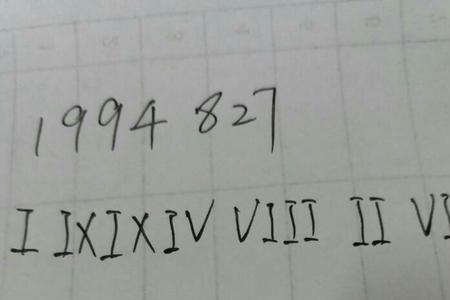 1994 827
I IX IX IV VIII II VI